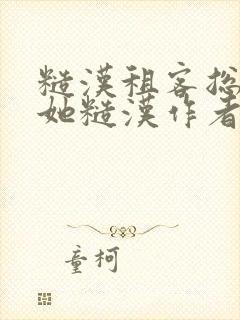 糙漢租客總
她糙漢作者
童柯